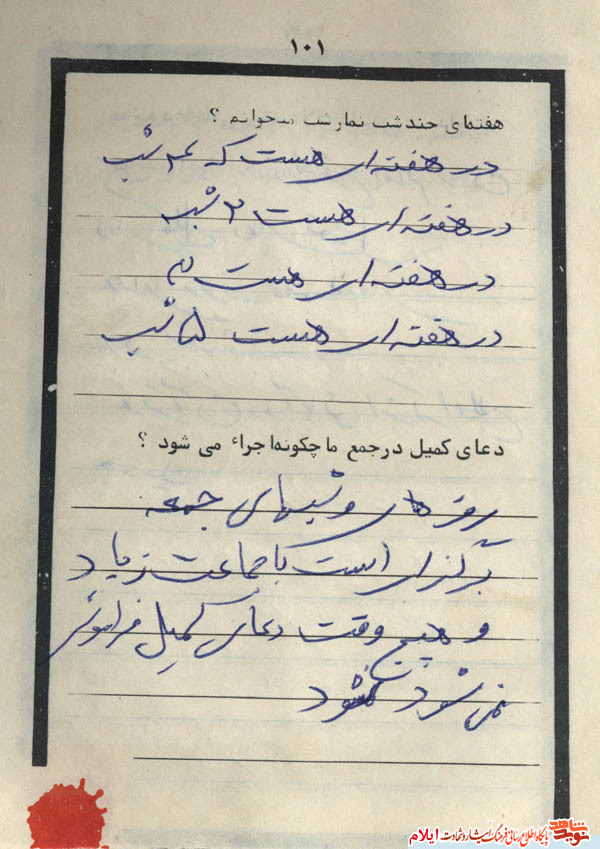 ۱۰۱
هفته‌ای چند شب نماز شب میخوانیم ؟
در هفته ای هست که ۴ شب
در هفته ای هست ۲ شب
در هفته ای هست
در هفته ای هست ۵ شب
دعای کمیل در جمع ما چگونه اجراء می شود ؟
روزهای و شبهای جمعه
برگزار است با جماعت زیاد
و هیچ وقت دعای کمیل فراموش
نمی شود
نوید شاهد
پایگاه اطلاع رسانی فرهنگ ایثار و شهادت ایلام